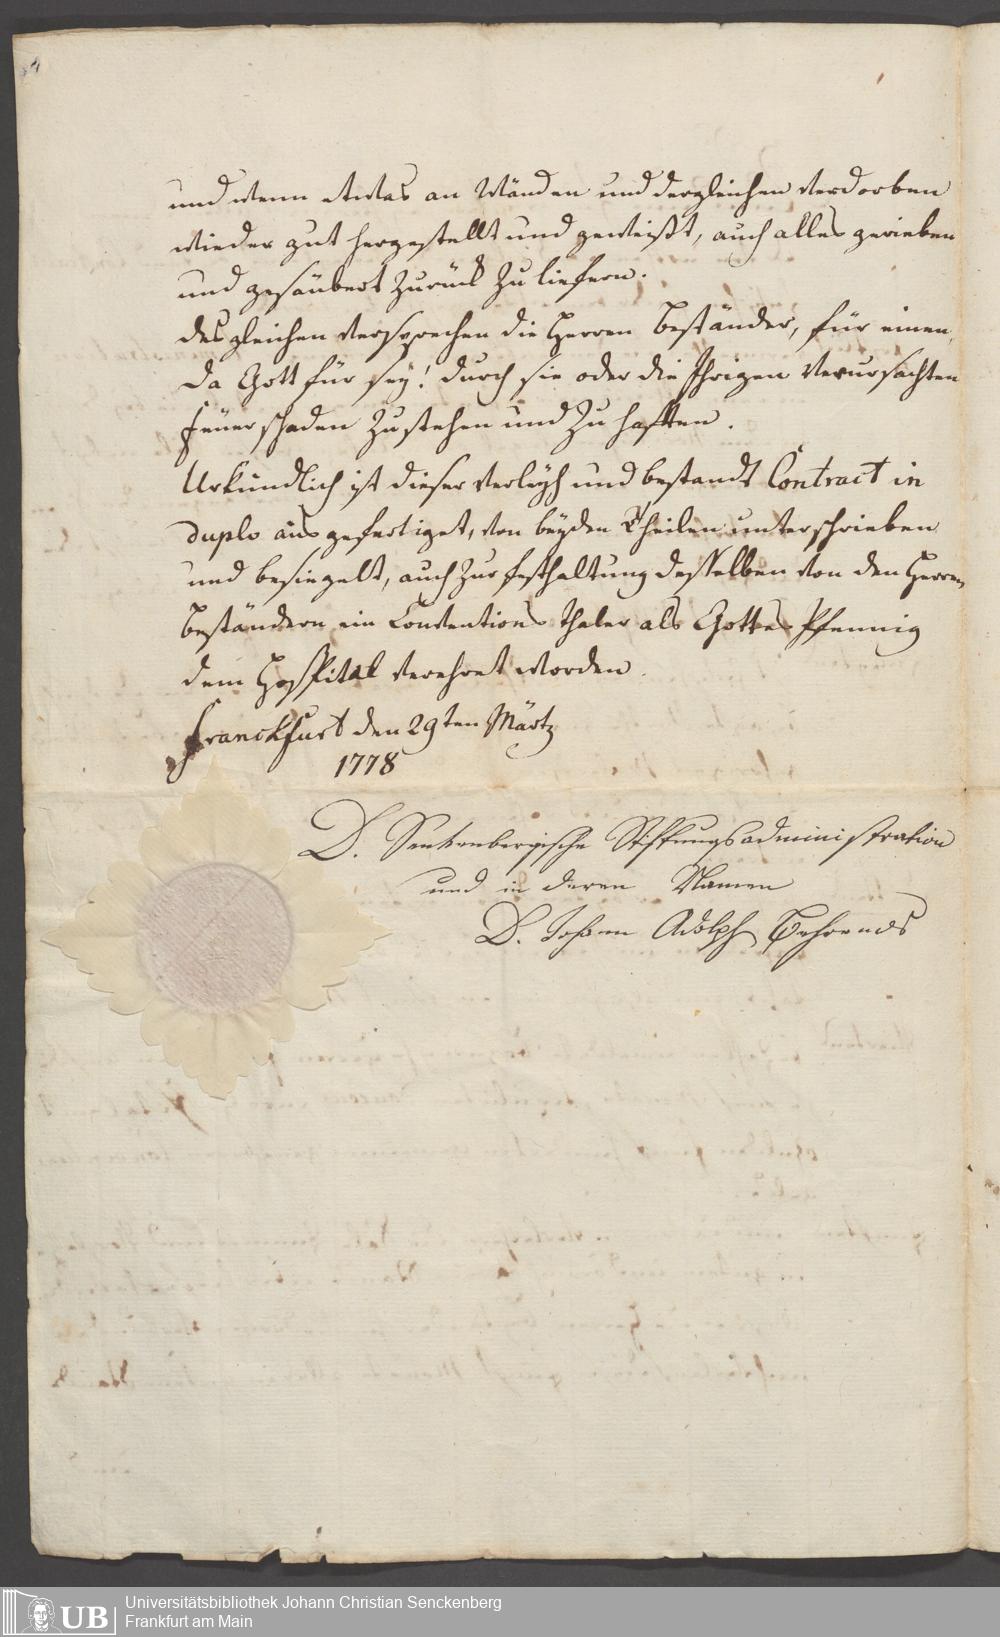 und wenn etwas an Wänden und dergleichen verdorben
wieder gut hergestellt und geweißt, auch alles gerieben
und gesäubert zurück zu liefern.
desgleichen versprechen die Herren Beständer, für einen,
da Gott für sey! durch sie oder die Ihrigen verursachten
Feuerschaden zu stehen und zu hafften.
Urkundlich ist dieser Verleyh und bestandt Contract in
duplo ausgefertiget, von beyden Theilen unterschrieben
und besiegelt, auch zur festhaltung desselben von den Herren
Beständern ein Conventions thaler als Gottes Pfennig
dem Hospital verehret worden.
Franckfurt den 29ten Märtz
1778
D. Senkenbergische Stiftungsadministration
und in deren Namen
D. Johann Adolph Behrends
UB
Universitätsbibliothek Johann Christian Senckenberg
Frankfurt am Main